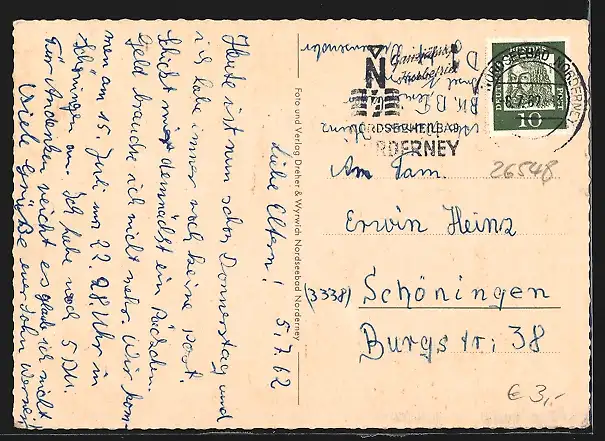 5.7.62
Liebe Eltern!
Heute ist nun schon Donnerstag und
ich habe immer noch keine Post.
Schickt mir demnächst ein Päckchen.
Geld brauche ich nicht mehr. Wir kom-
men am 15. Juli um 22.28 Uhr in
Schöningen an. Ich habe noch 5 DM.
Für Andenken reicht es glaube ich nicht.
Viele Grüße euer Sohn Werner!
Foto und Verlag Dreher & Wyrwich Nordseebad Norderney
NORDSEEHEILBAD
NORDERNEY
NORDSEEBAD NORDERNEY
DEUTSCHE
POST
10
26548
An Fam.
Erwin Heinz
(3338) Schöningen
Burgstr. 38
€ 3,-